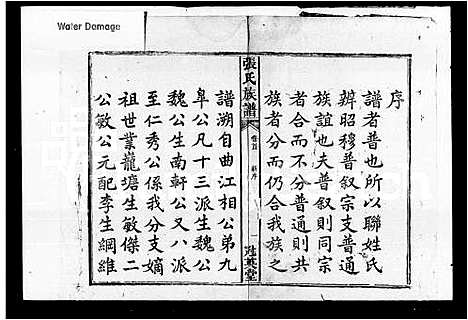 Water Damage
序
譜者普也所以聯姓氏
辨昭穆普叙宗支普通
族誼也夫普叙則同宗
者合而不分普通則共
族者分而仍合我族之
張氏族譜
卷首
序
一
堂
譜溯自曲江相公弟九
臯公凡十三派生魏公
魏公生南軒公又八派
至仁秀公係我分支嫡
祖世業龍塘生敏傑二
公敏公元配李生綱維